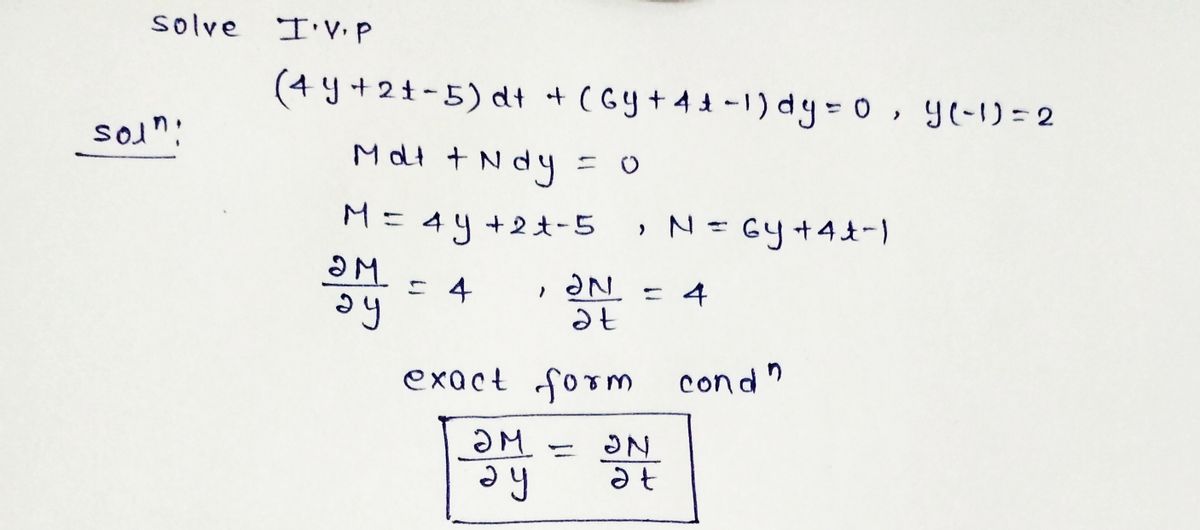 solve I.V.P
(4y+2t-5)dt + (6y+4t-1)dy=0 , y(-1)=2
solⁿ:
Mdt + Ndy = 0
M = 4y+2t-5 , N = 6y+4t-1
∂M/∂y = 4 , ∂N/∂t = 4
exact form condⁿ
∂M/∂y = ∂N/∂t